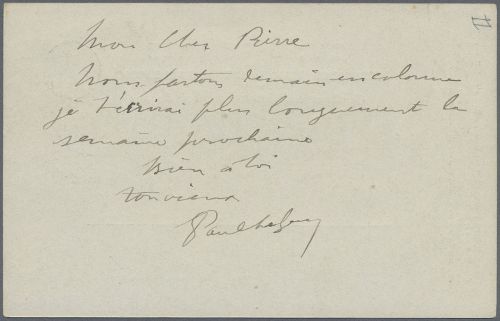 Mon cher Pierre
Nous partons demain en colonne
je t'écrirai plus longuement la
semaine prochaine
Bien à toi
ton vieux
Paul